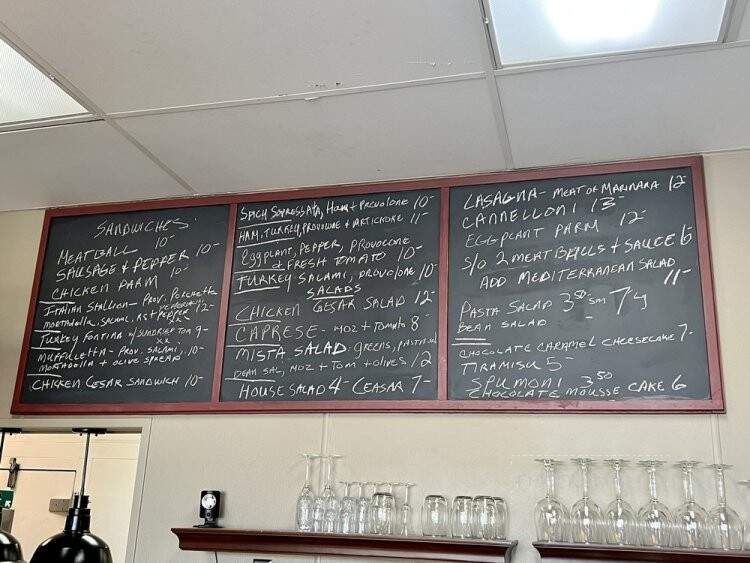 SANDWICHES
MEATBALL 10-
SAUSAGE & PEPPER 10-
CHICKEN PARM 10-
ITALIAN STALLION - PROV. PORCHETTA
MORTADELLA, SALAMI, RST PEPPER 12-
TURKEY FONTINA W/ SUNDRIED TOM 9-
MUFFULETTA - PROV. SALAMI, 10-
MORTADELLA + OLIVE SPREAD
CHICKEN CESAR SANDWICH 10-
SPICY SOPRESSATA, HAM + PROVOLONE 10-
HAM, TURKEY, PROVOLONE & ARTICHOKE 11-
EGGPLANT, PEPPER, PROVOLONE
& FRESH TOMATO 10-
TURKEY SALAMI, PROVOLONE 10-
SALADS
CHICKEN CESAR SALAD 12
CAPRESE - MOZ + TOMATO 8-
MISTA SALAD - GREENS, PASTA SAL
BEAN SAL, MOZ + TOM + OLIVES 12
HOUSE SALAD 4- CEASAR 7-
LASAGNA - MEAT OR MARINARA 12
CANNELLONI 13-
EGGPLANT PARM 12-
S/O 2 MEATBALLS & SAUCE 6
ADD MEDITERRANEAN SALAD
11-
PASTA SALAD 3.50 SM 7
BEAN SALAD
CHOCOLATE CARAMEL CHEESECAKE 7-
TIRAMISU 5-
SPUMONI 3.50
CHOCOLATE MOUSSE CAKE 6